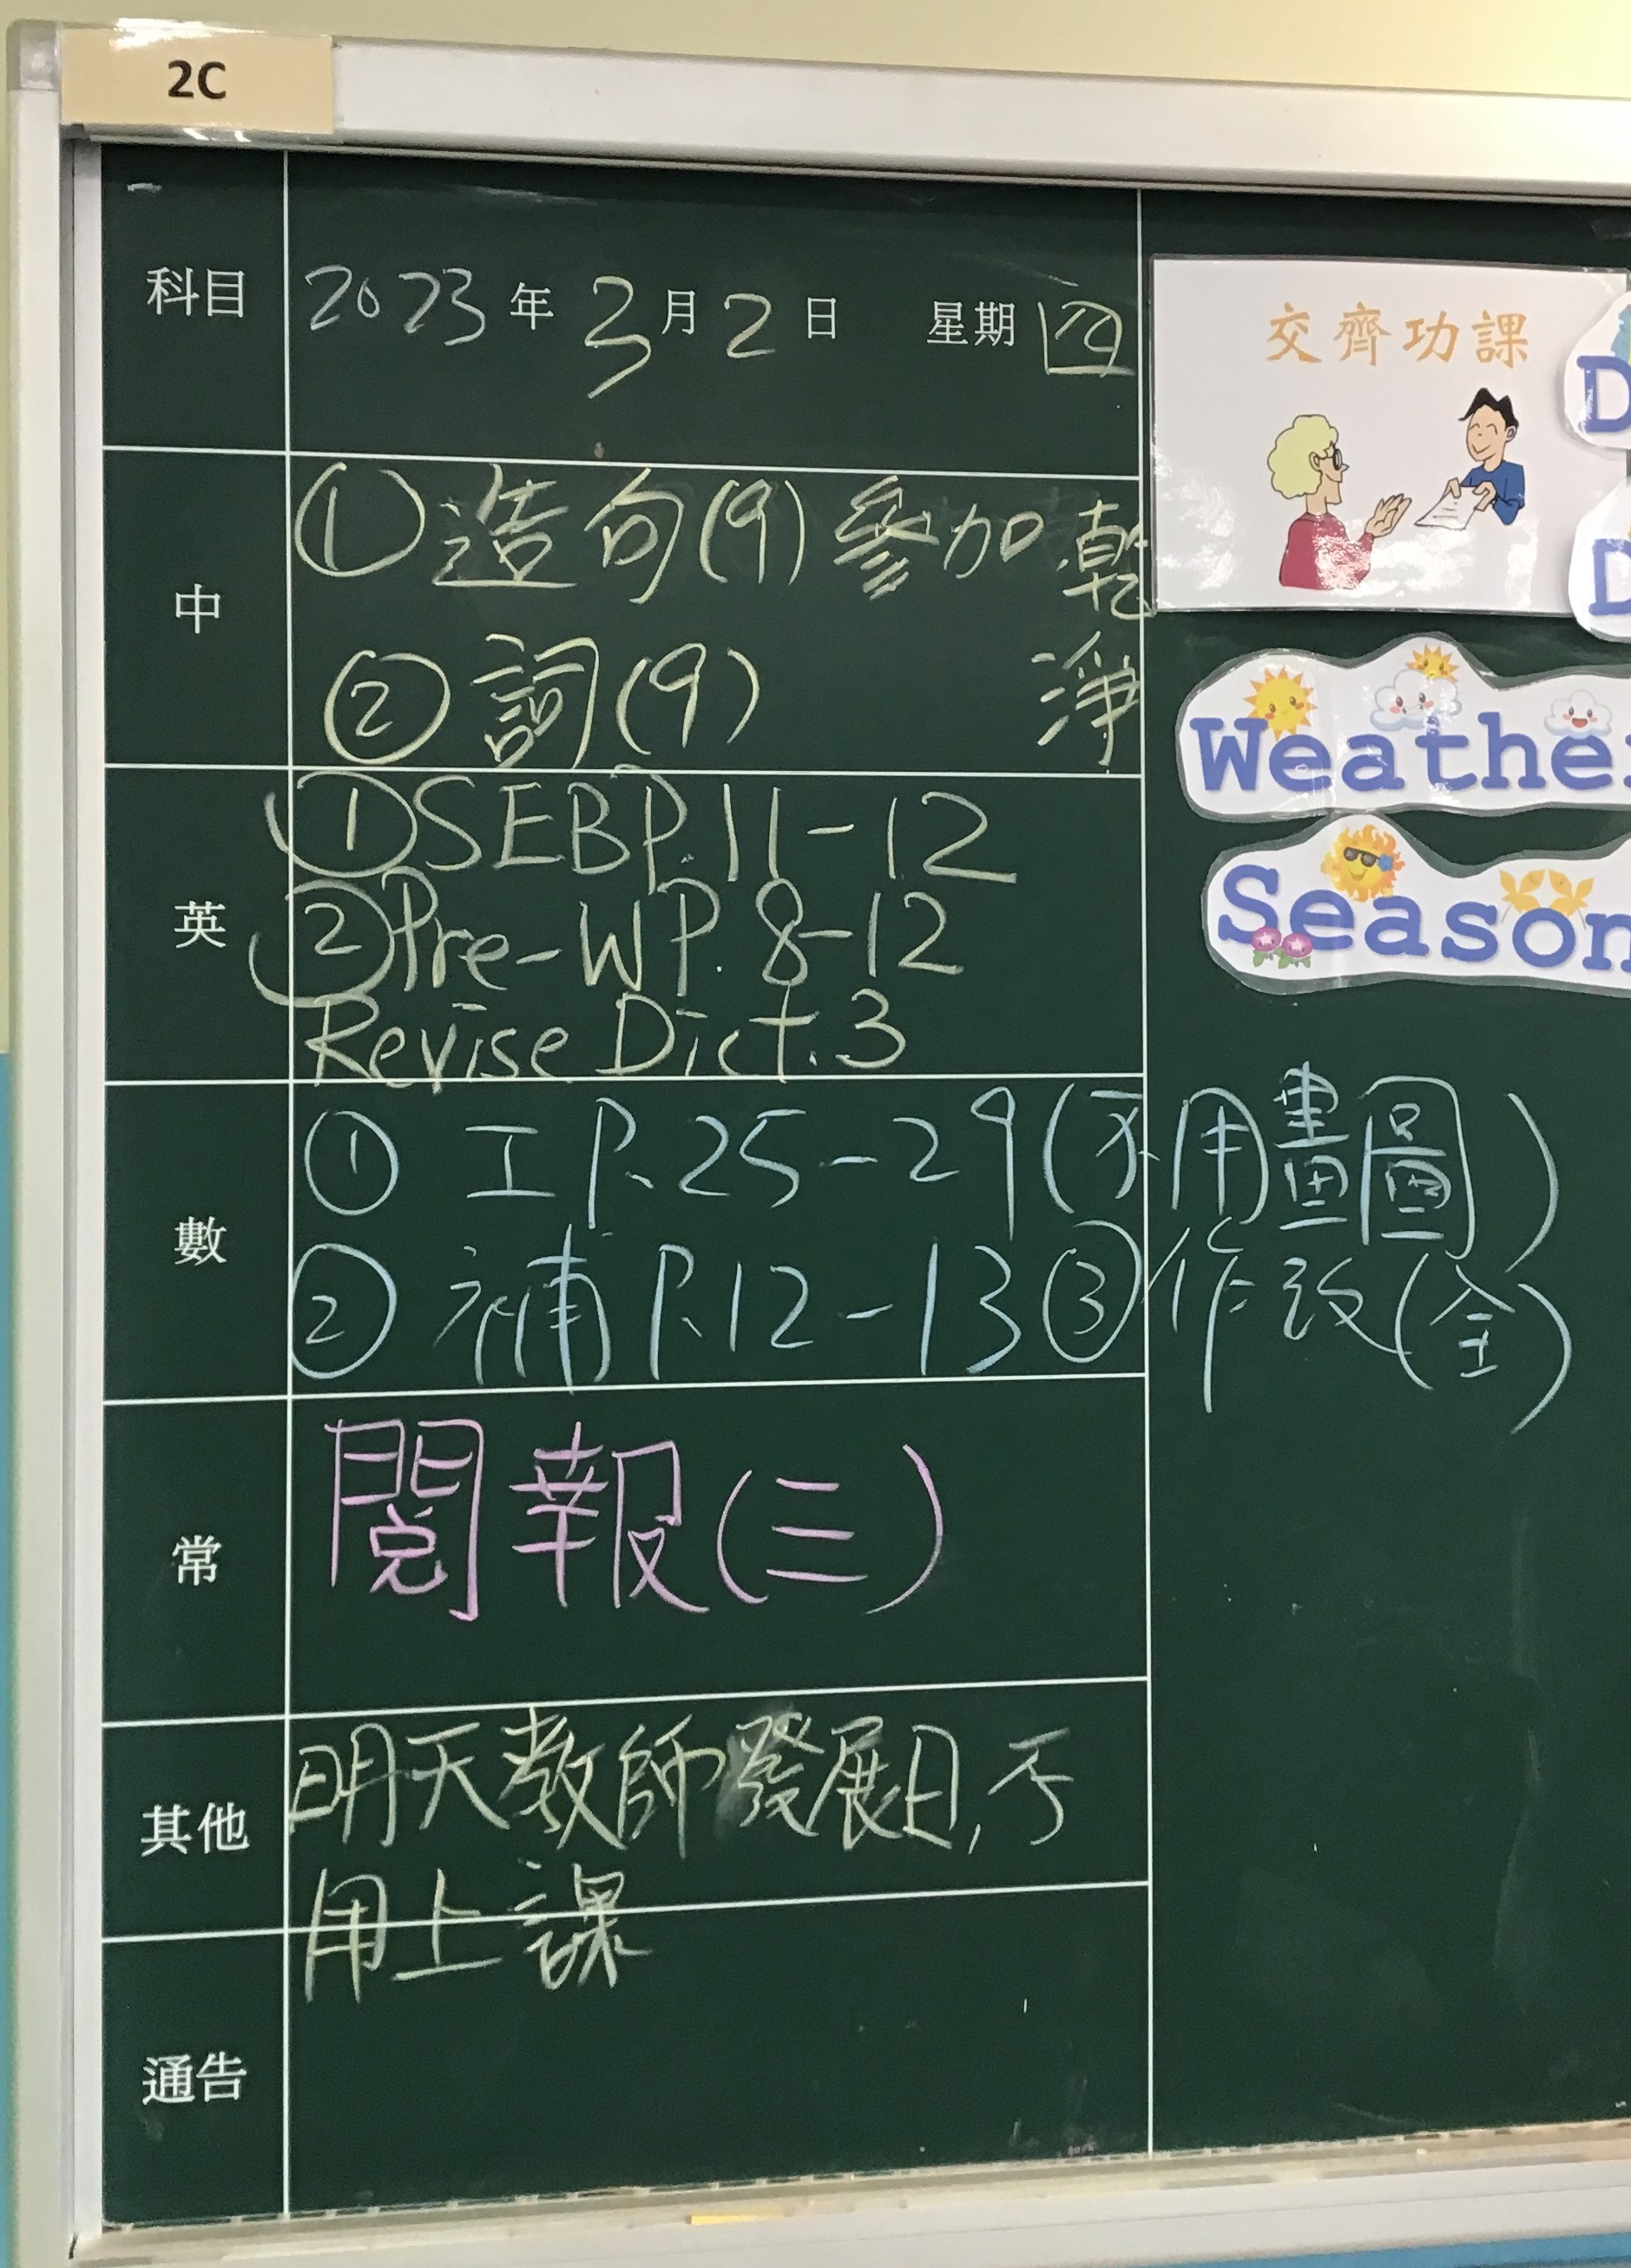 2C
科目 2023年3月2日 星期四
交齊功課
D
D
中
①造句(9)參加 乾淨
②詞(9)
Weather
Season
英
①SEBP.11-12
②Pre-WP.8-12
Revise Dict.3
數
①工P.25-29(不用畫圖)
②補P.12-13③作改(全)
常
閱報(三)
其他
明天教師發展日,不
用上課
通告